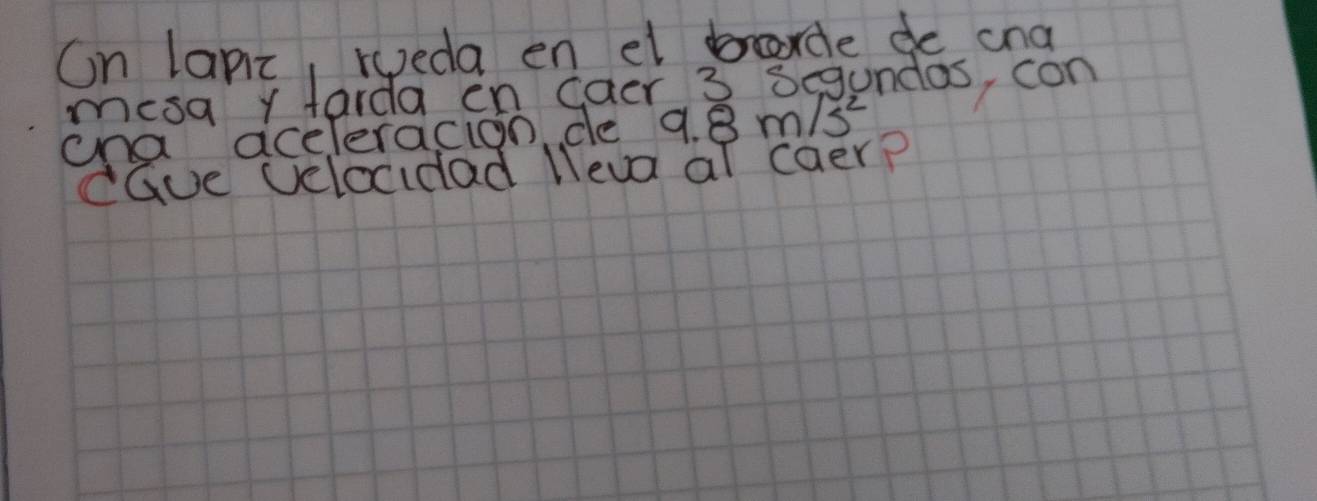 Un lapiz, rueda en el borde de una
mesa y tarda en caer 3 segundos, con
una aceleración de 9.8 m/s²
¿Que velocidad lleva al caer?